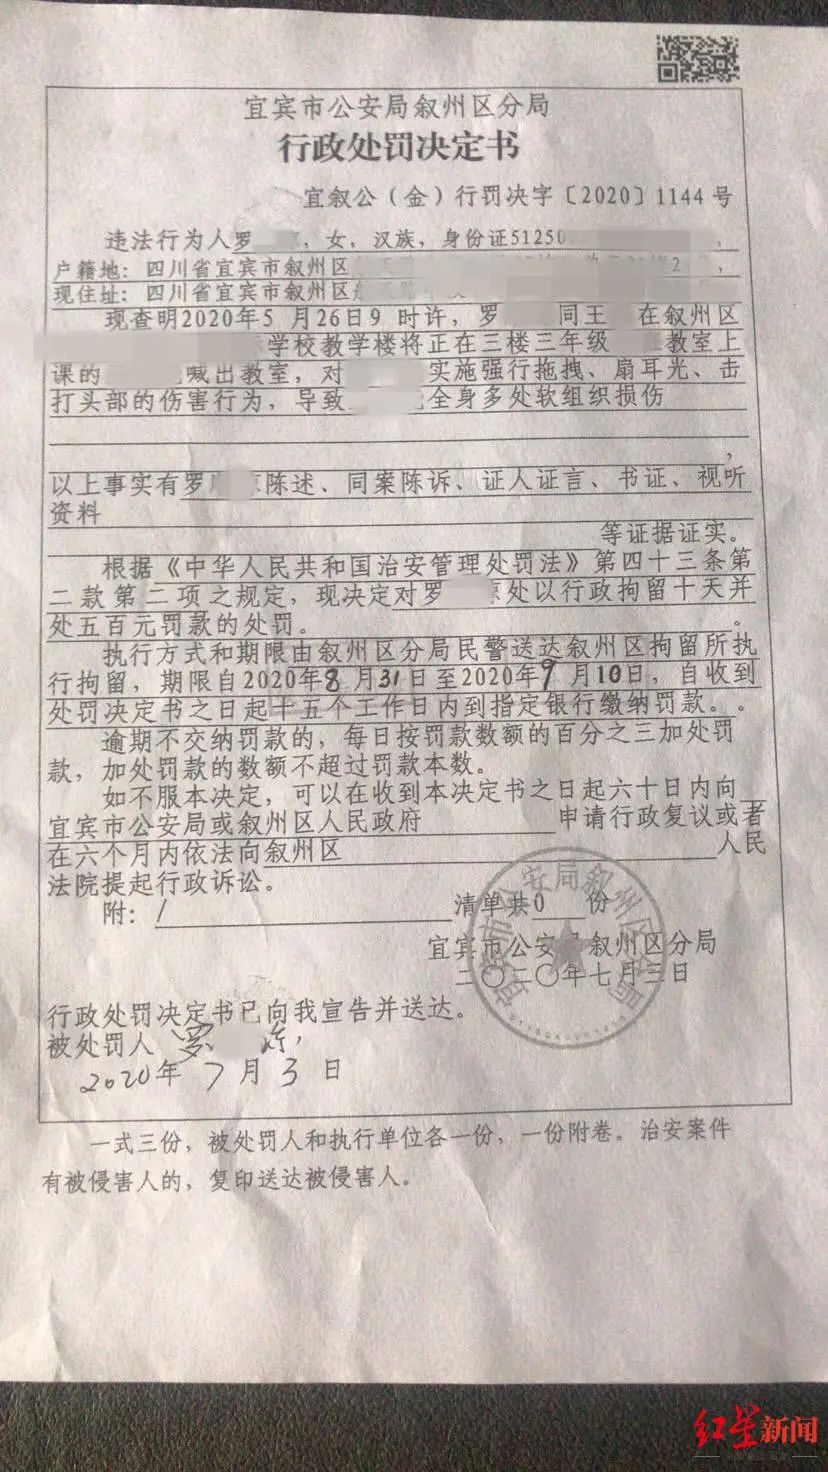 宜宾市公安局叙州区分局
行政处罚决定书
宜叙公（金）行罚决字〔2020〕1144号
违法行为人罗，女，汉族，身份证51250，
户籍地：四川省宜宾市叙州区
现住址：四川省宜宾市叙州区
现查明2020年5月26日9时许，罗同王在叙州区
学校教学楼将正在三楼三年级教室上
课的喊出教室，对实施强行拖拽、扇耳光、击
打头部的伤害行为，导致全身多处软组织损伤
，
以上事实有罗陈述、同案陈诉、证人证言、书证、视听
资料
等证据证实。
根据《中华人民共和国治安管理处罚法》第四十三条第
二款第二项之规定，现决定对罗处以行政拘留十天并
处五百元罚款的处罚。。
执行方式和期限由叙州区分局民警送达叙州区拘留所执
行拘留，期限自2020年8月31日至2020年9月10日，自收到
处罚决定书之日起十五个工作日内到指定银行缴纳罚款。。
逾期不交纳罚款的，每日按罚款数额的百分之三加处罚
款，加处罚款的数额不超过罚款本数。
如不服本决定，可以在收到本决定书之日起六十日内向
宜宾市公安局或叙州区人民政府申请行政复议或者
在六个月内依法向叙州区人民
法院提起行政诉讼。
附：/清单共0份
宜宾市公安局叙州区分局
二〇二〇年七月三日
行政处罚决定书已向我宣告并送达。
被处罚人 罗
2020年7月3日
一式三份，被处罚人和执行单位各一份，一份附卷。治安案件
有被侵害人的，复印送达被侵害人。
红星新闻